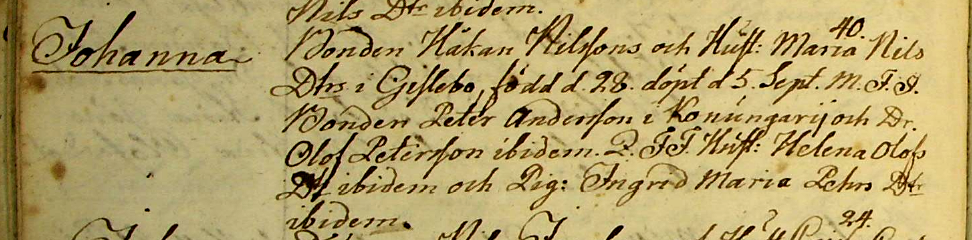 Nils Dtr ibidem.
Johanna Bonden Håkan Nilssons och Hust: Maria 40. Nils
Dtrs i Gislebo, född d. 28. döpt d 5. Sept. M. F. F.
Bonden Peter Andersson i Konungarij och Dr.
Olof Petersson ibidem. Q. F F. Hust: Helena Olofs
Dtr ibidem och Pig: Ingrid Maria Pehrs Dtr
ibidem.
24.